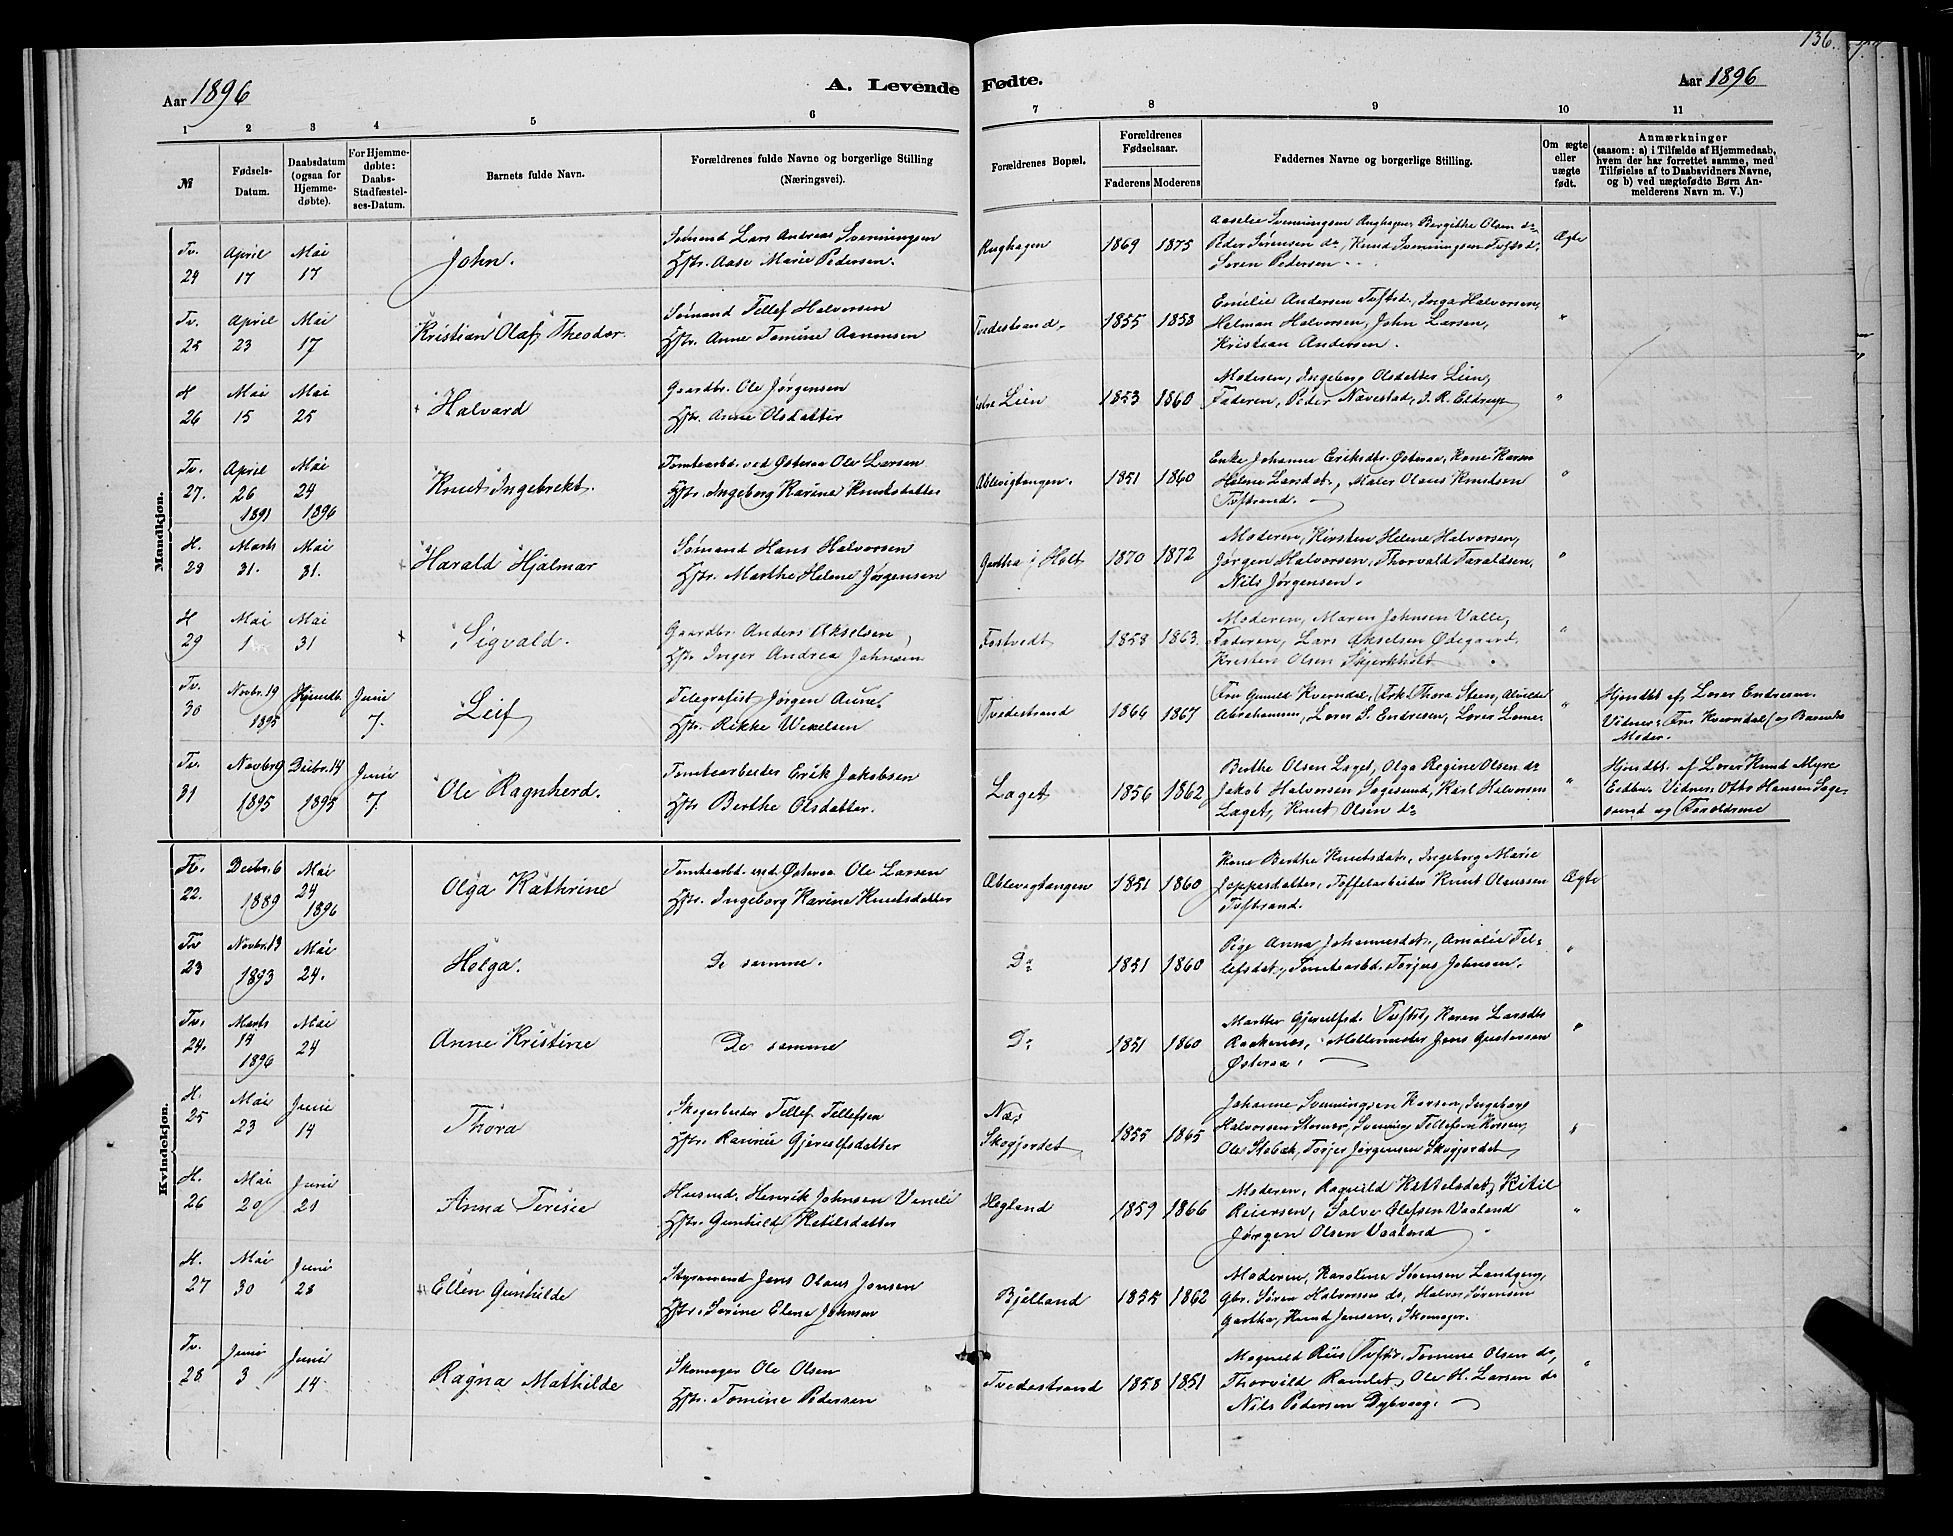 136.
Aar 1896
A. Levende Fødte.
Aar 1896
1 2 3 4 5 6 7 8 9 10 11
№
Fødsels-Datum.
Daabsdatum (ogsaa for Hjemme-døbte).
For Hjemme-døbte: Daabs-Stadfæstel-ses-Datum.
Barnets fulde Navn.
Forældrenes fulde Navne og borgerlige Stilling (Næringsvei).
Forældrenes Bopæl.
Forældrenes Fødselsaar.
Faderens Moderens
Faddernes Navne og borgerlige Stilling.
Om ægte eller uægte født.
Anmærkninger
(saasom: a) i Tilfælde af Hjemmedaab, hvem der har forrettet samme, med Tilføielse af to Daabsvidners Navne, og b) ved uægtefødte Børn An-melderens Navn m. V.)
Mandkjøn.
Tv. 24 April 17 Mai 17
John.
Sømand Lars Andreas Svenningsen
Hstr. Aase Marie Pedersen.
Rughagen 1869 1875
Aaselie Svenningsen Rughagen, Bergithe Olsen do
Peder Sørensen do, Knud Svenningsen Tvftrd,
Søren Pedersen
Ægte
Tv. 25 April 23 Mai 17
Kristian Olaf Theodor.
Sømand Tellef Halvorsen
Hstr. Anne Tomine Aanonsen
Tvedestrand. 1855 1858
Emilie Andersen Tvftrd., Inga Halvorsen,
Helman Halvorsen, John Larsen,
Kristian Andersen.
"
H 26 Mai 15 Mai 25
Halvard
Gaardbr. Ole Jørgensen
Hstr. Anne Olsdatter
Lien 1853 1860
Moderen, Ingeborg Olsdatter Lien,
Faderen, Peder Navestad, J. R. Eldrup
"
Tv. 27. April 26 1891 Mai 24 1896
Knut Ingebrekt.
Tomtearbd. ved Østeraa Ole Larsen
Hstr. Ingeborg Karine Knutsdatter
Ablevigtangen. 1851 1860
Enke Johanne Eriksdtr. Østeraa, Kone Karen
Helene Larsdat., Maler Olaus Knudsen
Tvftrand.
"
H. 28 Marts 31. Mai 31.
Harald Hjalmar
Sømand Hans Halvorsen
Hstr. Marthe Helene Jørgensen
Gartha i Holt 1870 1872
Moderen, Kirsten Helene Halvorsen,
Jørgen Halvorsen, Thorvald Taraldsen,
Nils Jørgensen.
"
H 29 Mai 1 Mai 31
Sigvald.
Gaardbr. Anders Akselsen
Hstr Inger Andrea Johnsen
Fostvedt 1858 1863.
Moderen, Maren Johnsen Valle,
Faderen, Lars Akselsen Ødegaard,
Kristen Olsen Skjerkholt
"
Tv. 30 Novbr. 19 1895 Hjemdb. Juni 7.
Leif
Telegrafist Jørgen Aune
Hstr. Rikke Wexelsen
Tvedestrand 1866 1867
Fru Gunuld Kverndal, Frk. Thora Steen, Alvilde
Abrahamsen, Lærer S. Endresen,
"
Hjmdbt. af Lærer Endresen.
Vidner: Fru Kverndal og Barnets
Moder.
Tv. 31 Novbr 9 1895 Decbr. 14 1895 Juni 7.
Ole Ragnherd.
Tomtearbeider Erik Jakobsen
Hstr Berthe Olsdatter.
Laget 1856 1862
Berthe Olsen Laget, Olga Regine Olsen do
Jakob Halvorsen Sagesund, Karl Halvorsen
Laget, Knut Olsen do
"
Hjmdbt. af Lærer Knud Myre
Eidbo. Vidner: Otto Hansen Sage-
sund og Forældrene
Kvindekjøn.
Tv. 22. Decbr. 6 1889 Mai 24 1896
Olga Kathrine
Tomtearbd. ved Østeraa Ole Larsen
Hstr. Ingeborg Karine Knutsdatter
Ablevigtangen 1851 1860
Kone Berthe Knutsdat., Ingeborg Marie
Joppesdatter, Toffelarbeider Knut Olaussen
Tvftrand.
Ægte
Tv 23 Novbr. 13 1893 Mai 24.
Helga.
De samme.
Do 1851 1860
Pige Anna Johannesdat., Amalie Tel-
lefsdat., Tomtearbd. Torjus Johnsen.
"
Tv. 24. Marts 14 1896 Mai 24
Anne Kristine
De samme
Do 1851 1860
Marthe Gjerulfsd. Tvftrd, Karen Larsdtr
Raakenæs, Møllemester Jens Gustavsen
Østeraa.
"
H. 25 Mai 23 Juni 14
Thora
Skogarbeider Tellef Tellefsen
Hstr. Rannei Gjerulfsdatter
Næs Skogjordet 1855 1865
Johanne Svenningsen Korsen, Ingeborg
Halvorsen, Svennung Tellefsen Korsen,
Ole Stebæk, Torjer Jørgensen Skogjordet
"
H. 26 Mai 20 Juni 21
Anna Terisie
Husmd. Henrik Johnsen Veneli
Hstr. Gunhild Ketilsdatter
Hegland 1859 1866
Moderen, Ragnild Kettelsdat, Kitil
Reiersen, Salve Olefsen Vaaland
Jørgen Olsen Vaaland
"
H. 27 Mai 30 Juni 28
Ellen Gunhilde
Styrmand Jens Olaus Jensen
Hstr. Serine Elene Johnsen
Bjelland 1855 1862
Moderen, Karoline Sørensen Landgong,
Gbr. Søren Halvorsen do, Halvor Sørensen
Gartha, Knud Jensen, Skomager.
Tv. 28 Juni 3 Juni 14.
Ragna Mathilde
Skomager Ole Olsen
Hstr. Tomine Pedersen
Tvedestrand 1858 1851
Magnild Riis Tvftr., Tomine Olsen do,
Thorvild Ramlet, Ole H. Larsen do
Nils Pedersen Dybvaag.
"